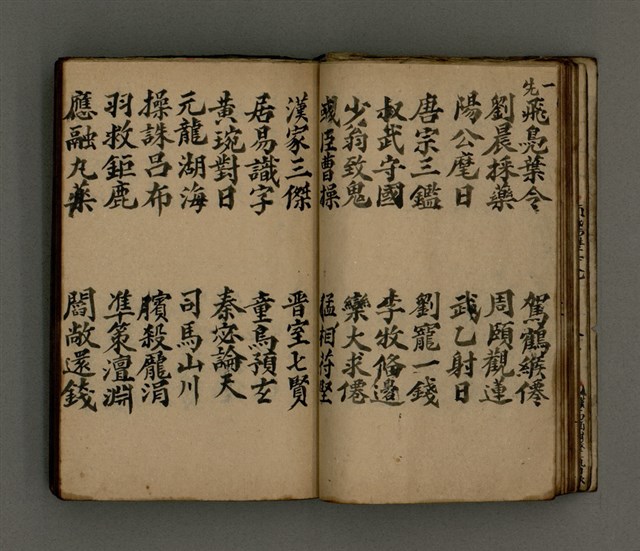 一先
飛鳧葉令 駕鶴緱僊
劉晨採藥 周頤觀蓮
陽公麾日 武乙射日
唐宗三鑑 劉寵一錢
叔武守國 李牧俻邉
少翁致鬼 欒大求僊
彧臣曹操 猛相苻堅
漢家三傑 晋室七賢
居易識字 童烏預玄
黃琬對日 秦宓論天
元龍湖海 司馬山川
操誅呂布 臏殺龐涓
羽救鉅鹿 凖策澶淵
應融丸藥 閻敞還錢